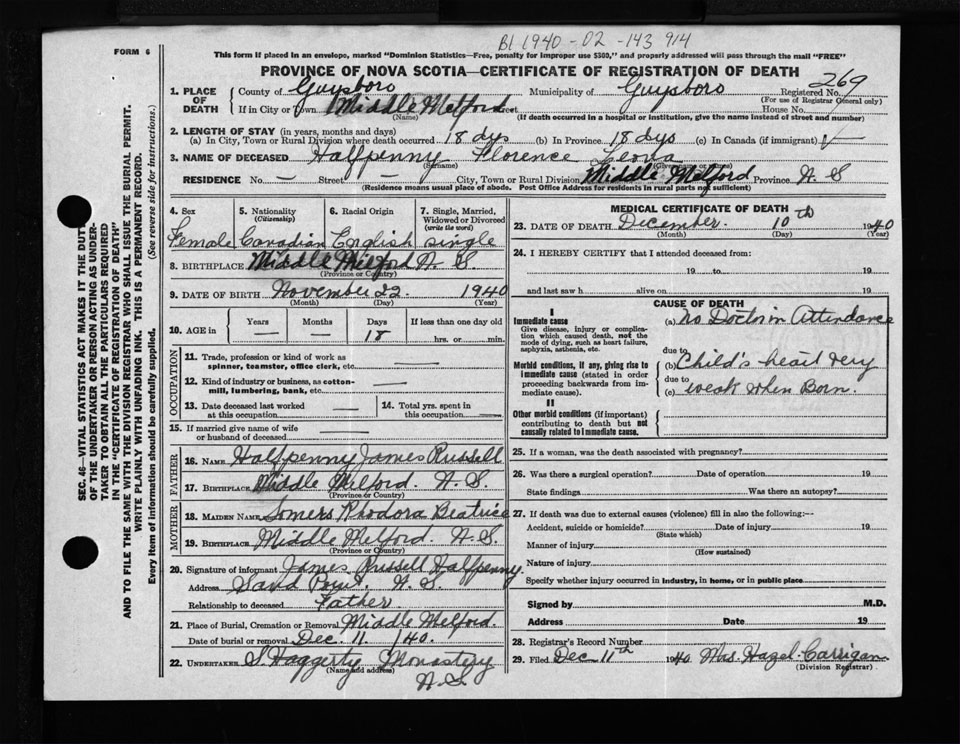 B1 1940-02-143 914
FORM 6
This form if placed in an envelope, marked "Dominion Statistics—Free, penalty for improper use $300," and properly addressed will pass through the mail "FREE"
PROVINCE OF NOVA SCOTIA—CERTIFICATE OF REGISTRATION OF DEATH
1. PLACE OF DEATH County of Guysboro Municipality of Guysboro Registered No. 269
(For use of Registrar General only)
If in City or Town Middle Melford Street House No.
(Name) (If death occurred in a hospital or institution, give the name instead of street and number)
2. LENGTH OF STAY (in years, months and days)
(a) In City, Town or Rural Division where death occurred 18 dys (b) In Province 18 dys (c) In Canada (if immigrant)
3. NAME OF DECEASED Halfpenny Florence Leona
(Surname)
RESIDENCE No. — Street — City, Town or Rural Division Middle Melford Province N. S
(Residence means usual place of abode. Post Office Address for residents in rural parts not sufficient)
4. Sex 5. Nationality (Citizenship) 6. Racial Origin 7. Single, Married, Widowed or Divorced (write the word)
Female Canadian English single
8. BIRTHPLACE Middle Milford N. S.
(Province or Country)
9. DATE OF BIRTH November 22 1940
(Month) (Day) (Year)
10. AGE in Years — Months — Days 18 If less than one day old hrs. or min.
OCCUPATION
11. Trade, profession or kind of work as spinner, teamster, office clerk, etc. —
12. Kind of industry or business, as cotton-mill, lumbering, bank, etc. —
13. Date deceased last worked at this occupation — 14. Total yrs. spent in this occupation —
15. If married give name of wife or husband of deceased —
FATHER
16. NAME Halfpenny James Russell
17. BIRTHPLACE Middle Milford. N. S.
(Province or Country)
MOTHER
18. MAIDEN NAME Somers Rhodora Beatrice
19. BIRTHPLACE Middle Melford. N. S.
(Province or Country)
20. Signature of informant James Russell Halfpenny.
Address Sand Point. N. S.
Relationship to deceased Father.
21. Place of Burial, Cremation or Removal Middle Melford.
Date of burial or removal Dec. 11. 1940.
22. UNDERTAKER S. Haggerty Monastery
(Name and address)
N. S.
MEDICAL CERTIFICATE OF DEATH
23. DATE OF DEATH December 10th 1940
(Month) (Day) (Year)
24. I HEREBY CERTIFY that I attended deceased from:
19 to 19
and last saw h alive on 19
CAUSE OF DEATH
I
Immediate cause (a) no Doctor in Attendance
Give disease, injury or complication which caused death, not the mode of dying, such as heart failure, asphyxia, asthenia, etc.
due to
Morbid conditions, if any, giving rise to immediate cause (stated in order proceeding backwards from immediate cause). (b) Child's heart very
due to
(c) weak when Born.
II
Other morbid conditions (if important) contributing to death but not causally related to immediate cause.
25. If a woman, was the death associated with pregnancy?
26. Was there a surgical operation? Date of operation 19
State findings Was there an autopsy?
27. If death was due to external causes (violence) fill in also the following:—
Accident, suicide or homicide? Date of injury 19
(State which)
Manner of injury
(How sustained)
Nature of injury
Specify whether injury occurred in industry, in home, or in public place
Signed by M.D.
Address Date 19
28. Registrar's Record Number
29. Filed Dec 11th 1940 Mrs. Hazel Carrigan
(Division Registrar)
SEC. 46—VITAL STATISTICS ACT MAKES IT THE DUTY
OF THE UNDERTAKER OR PERSON ACTING AS UNDER-
TAKER TO OBTAIN ALL THE PARTICULARS REQUIRED
IN THE "CERTIFICATE OF REGISTRATION OF DEATH"
AND TO FILE THE SAME WITH THE DIVISION REGISTRAR WHO SHALL ISSUE THE BURIAL PERMIT.
WRITE PLAINLY WITH UNFADING INK. THIS IS A PERMANENT RECORD.
Every item of information should be carefully supplied. (See reverse side for instructions.)